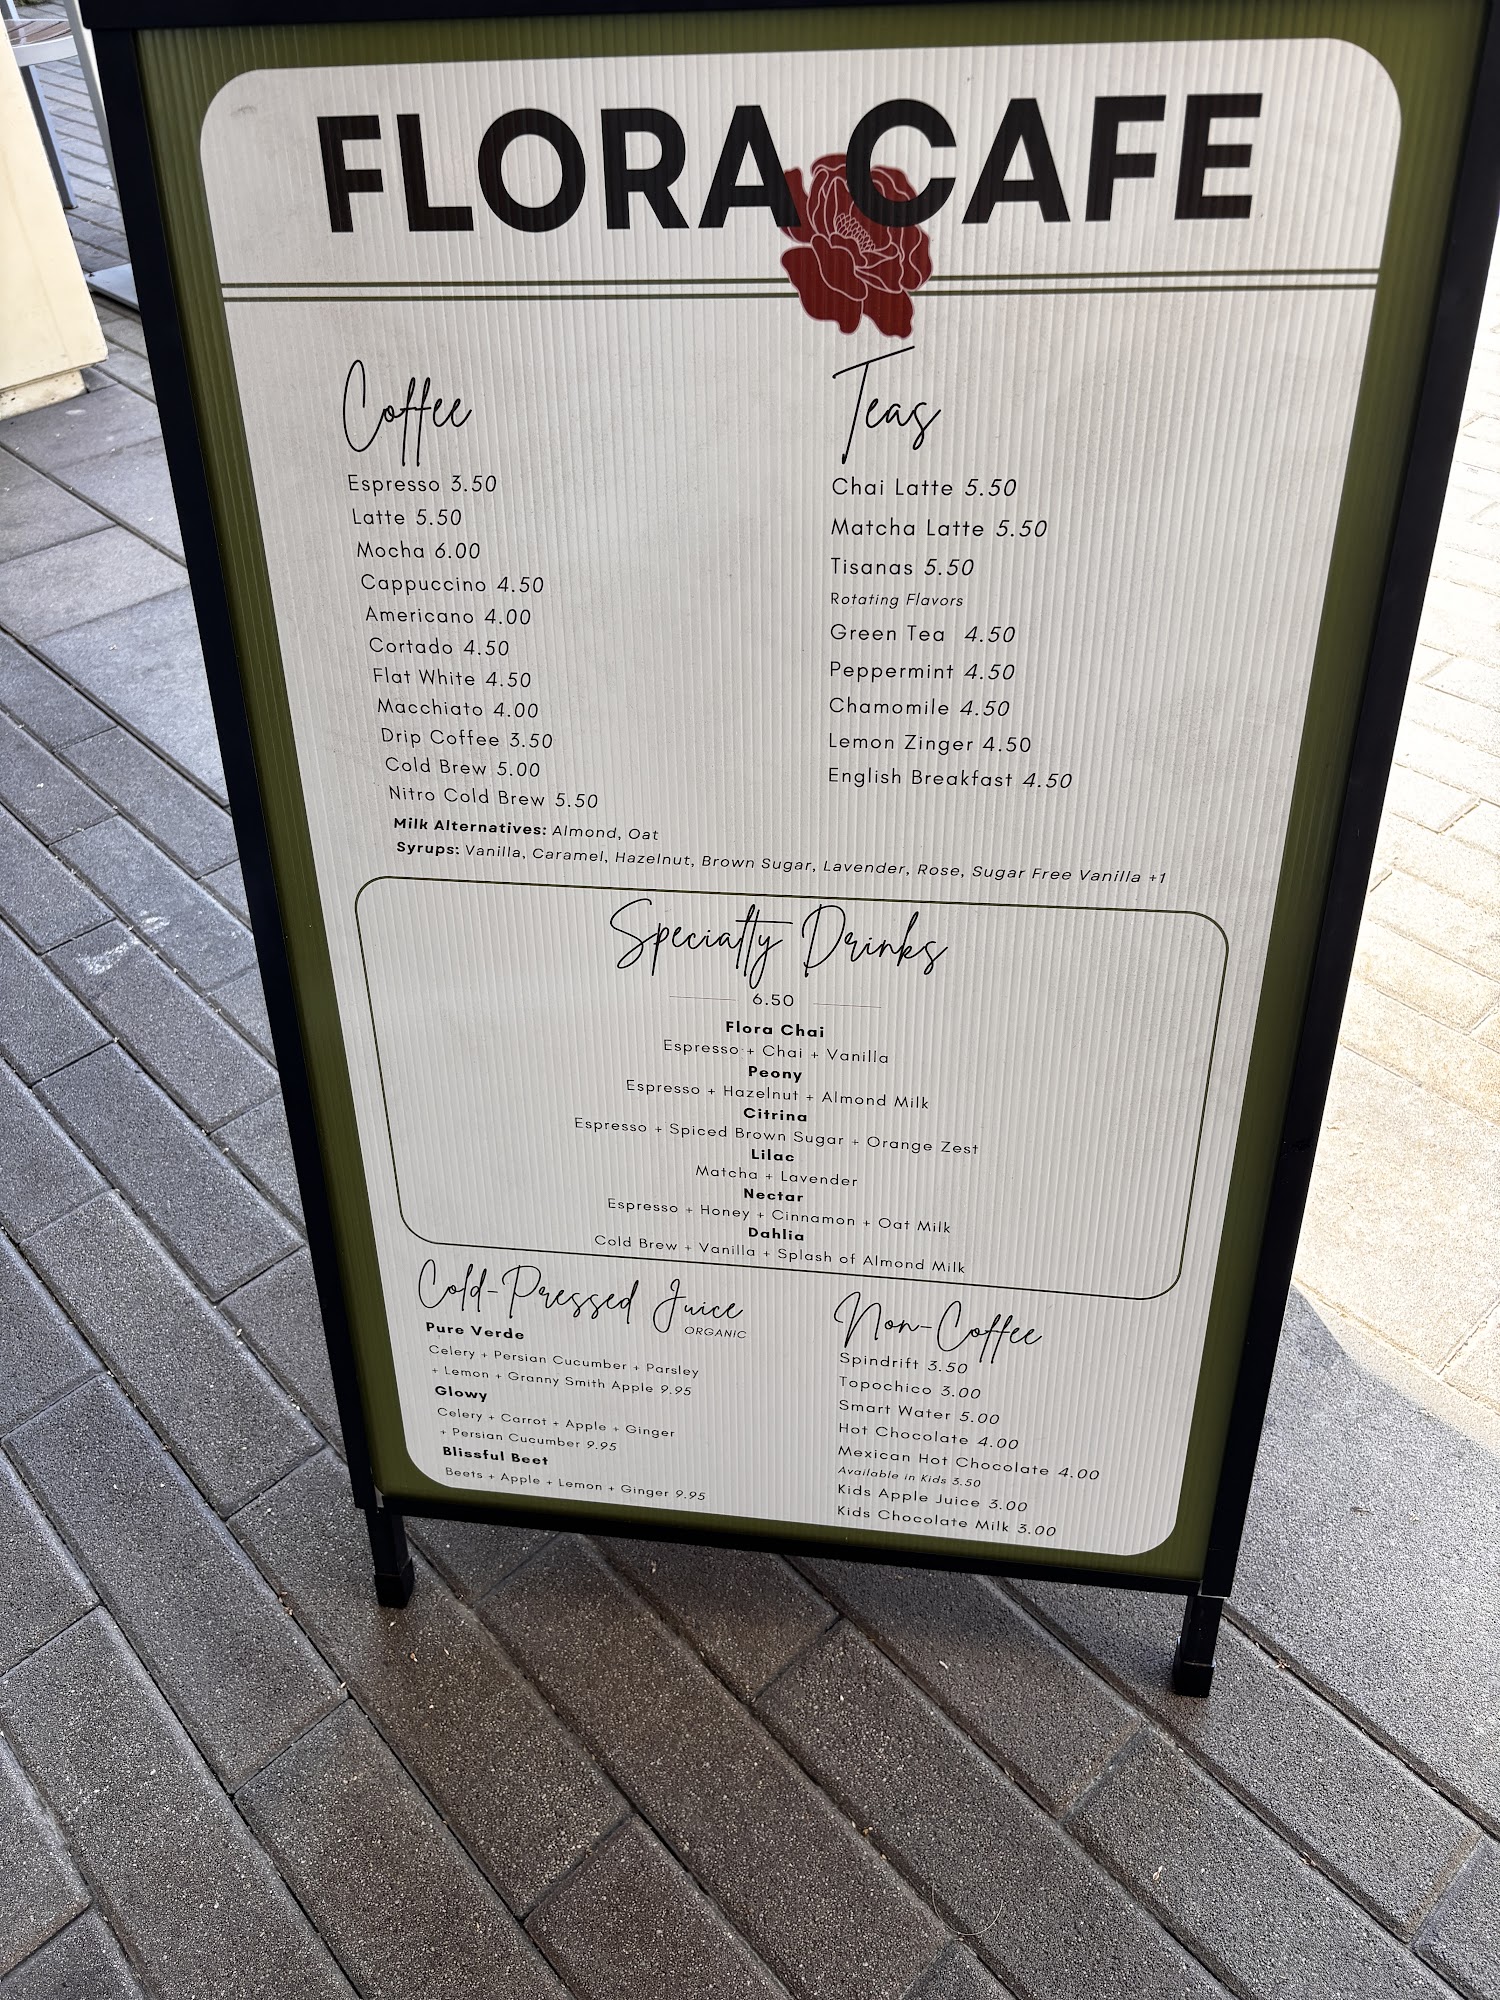 FLORA CAFE
Coffee
Espresso 3.50
Latte 5.50
Mocha 6.00
Cappuccino 4.50
Americano 4.00
Cortado 4.50
Flat White 4.50
Macchiato 4.00
Drip Coffee 3.50
Cold Brew 5.00
Nitro Cold Brew 5.50
Teas
Chai Latte 5.50
Matcha Latte 5.50
Tisanas 5.50
Rotating Flavors
Green Tea 4.50
Peppermint 4.50
Chamomile 4.50
Lemon Zinger 4.50
English Breakfast 4.50
Milk Alternatives: Almond, Oat
Syrups: Vanilla, Caramel, Hazelnut, Brown Sugar, Lavender, Rose, Sugar Free Vanilla +1
Specialty Drinks
6.50
Flora Chai
Espresso + Chai + Vanilla
Peony
Espresso + Hazelnut + Almond Milk
Citrina
Espresso + Spiced Brown Sugar + Orange Zest
Lilac
Matcha + Lavender
Nectar
Espresso + Honey + Cinnamon + Oat Milk
Dahlia
Cold Brew + Vanilla + Splash of Almond Milk
Cold-Pressed Juice
ORGANIC
Pure Verde
Celery + Persian Cucumber + Parsley
+ Lemon + Granny Smith Apple 9.95
Glowy
Celery + Carrot + Apple + Ginger
+ Persian Cucumber 9.95
Blissful Beet
Beets + Apple + Lemon + Ginger 9.95
Non-Coffee
Spindrift 3.50
Topochico 3.00
Smart Water 5.00
Hot Chocolate 4.00
Mexican Hot Chocolate 4.00
Available in Kids 3.50
Kids Apple Juice 3.00
Kids Chocolate Milk 3.00